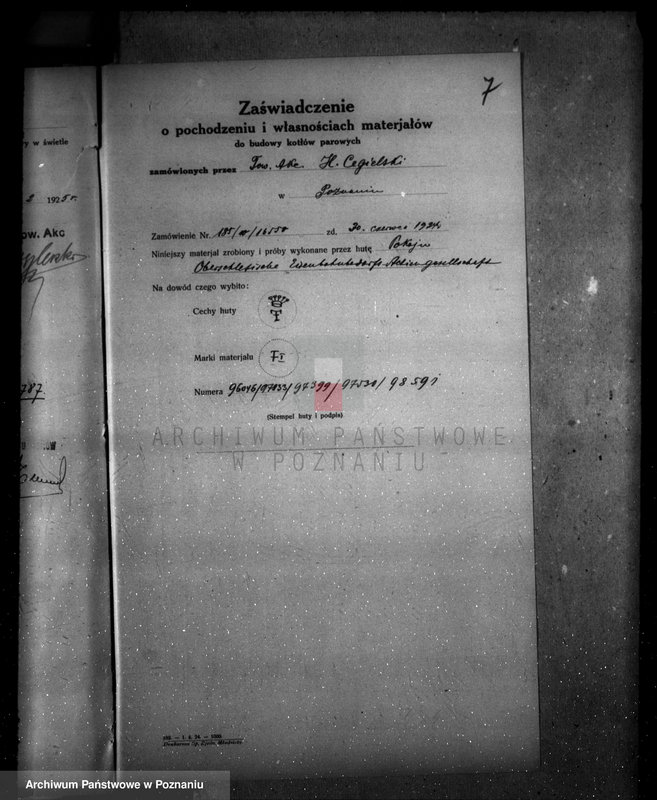 7
Zaświadczenie
o pochodzeniu i własnościach materjałów
do budowy kotłów parowych
zamówionych przez Tow. Akc. H. Cegielski
w Poznaniu
Zamówienie Nr. zd. 30. czerwca 1924
Niniejszy materjał zrobiony i próby wykonane przez hutę Pokoju
Oberschlesische Eisenbahnbedarfs Actiengesellschaft
Na dowód czego wybito:
Cechy huty
Marki materjału FI
Numera 96046/97033/97399/97530/98591
(Stempel huty i podpis)
ARCHIWUM PAŃSTWOWE
W POZNANIU
y w świetle
2 1925 r.
ow. Akc
787
ów
Archiwum Państwowe w Poznaniu